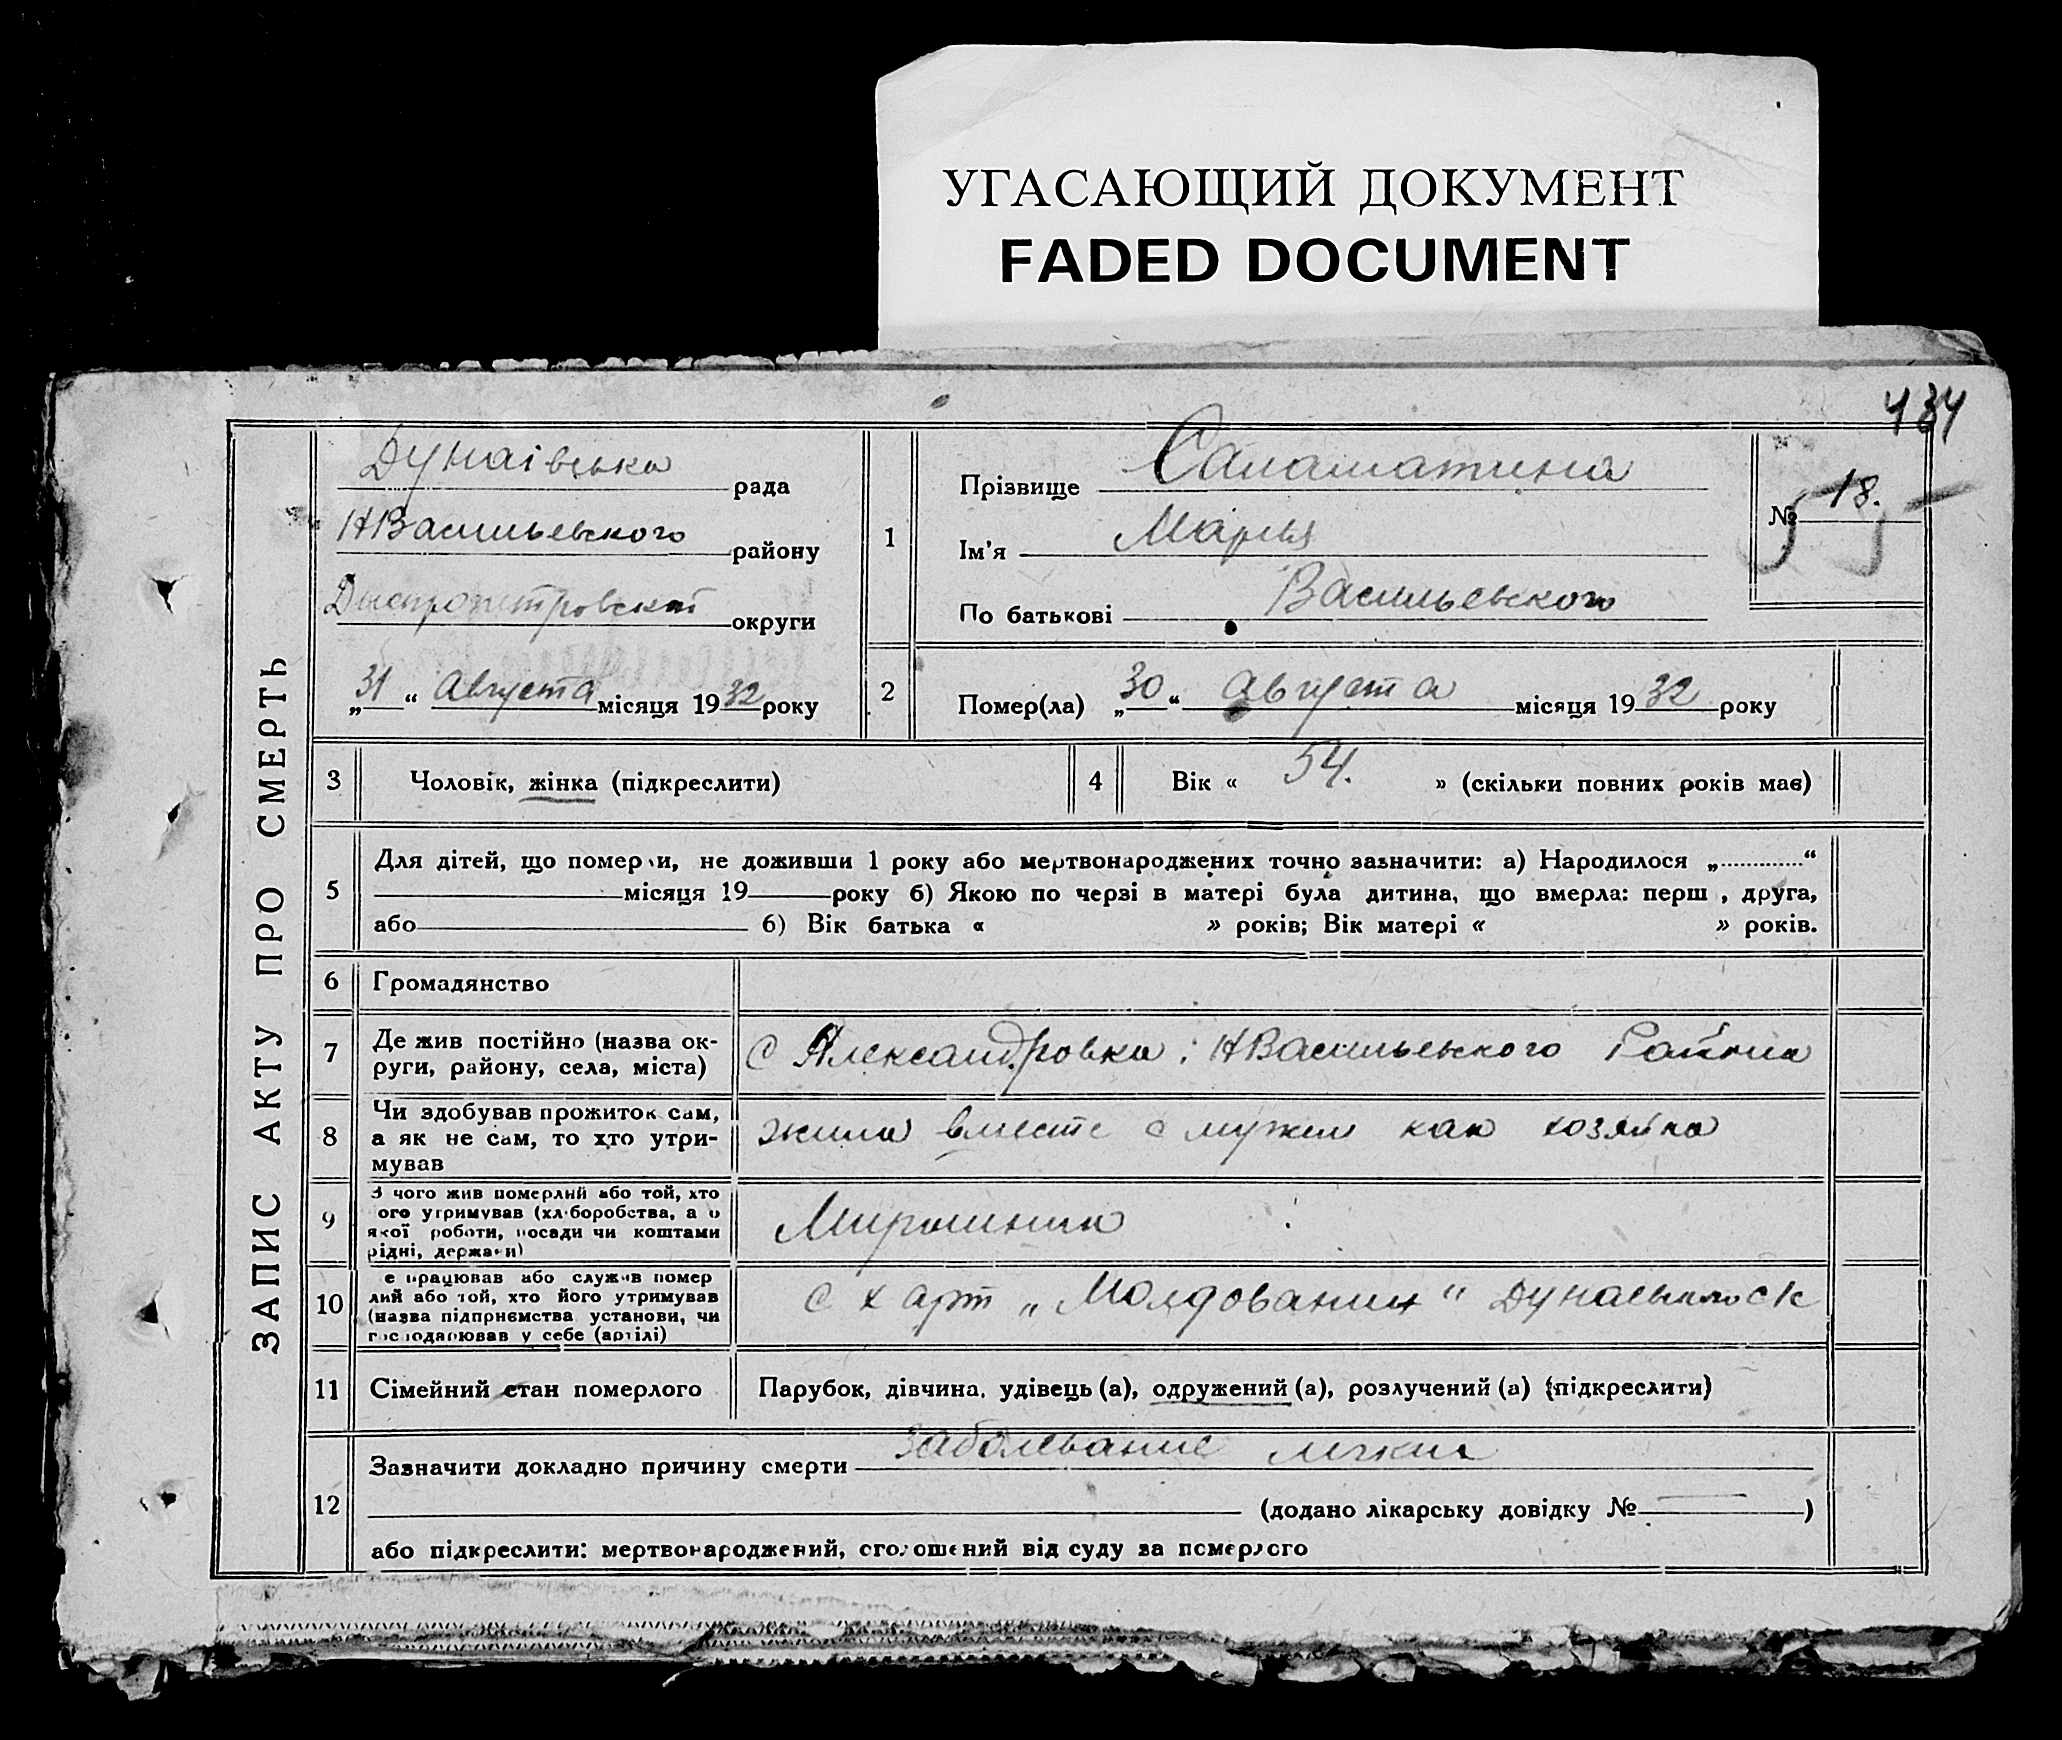 УГАСАЮЩИЙ ДОКУМЕНТ
FADED DOCUMENT
434
ЗАПИС АКТУ ПРО СМЕРТЬ
Дунаівська рада
НВасильевского району
Днепропетровской округи
„31“ Августа місяця 1932 року
1
Прізвище Саламатина
Ім'я Мария
По батькові Васильевского
№ 18.
2
Помер(ла) „30“ Августа місяця 1932 року
3 Чоловік, жінка (підкреслити)
4 Вік « 54. » (скільки повних років має)
5
Для дітей, що померли, не доживши 1 року або мертвонароджених точно зазначити: а) Народилося „ “
місяця 19 року б) Якою по черзі в матері була дитина, що вмерла: перш , друга,
або б) Вік батька « » років; Вік матері « » років.
6 Громадянство
7 Де жив постійно (назва ок-
руги, району, села, міста)
с Александровка НВасильевского Района
8 Чи здобував прожиток сам,
а як не сам, то хто утри-
мував
жила вместе с мужем как хозяйка
9 З чого жив померлий або той, хто
ого утримував (хліборобства, а о
якої роботи, посади чи коштами
рідні, держави)
10 е працював або служив помер
лий або той, хто його утримував
(назва підприємства установи, чи
господарював у себе (артілі)
с х арт „Молдованин“
11 Сімейний стан померлого
Парубок, дівчина, удівець (а), одружений (а), розлучений (а) (підкреслити)
12
Зазначити докладно причину смерти заболевание легких
(додано лікарську довідку № — )
або підкреслити: мертвонароджений, оголошений від суду за померлого